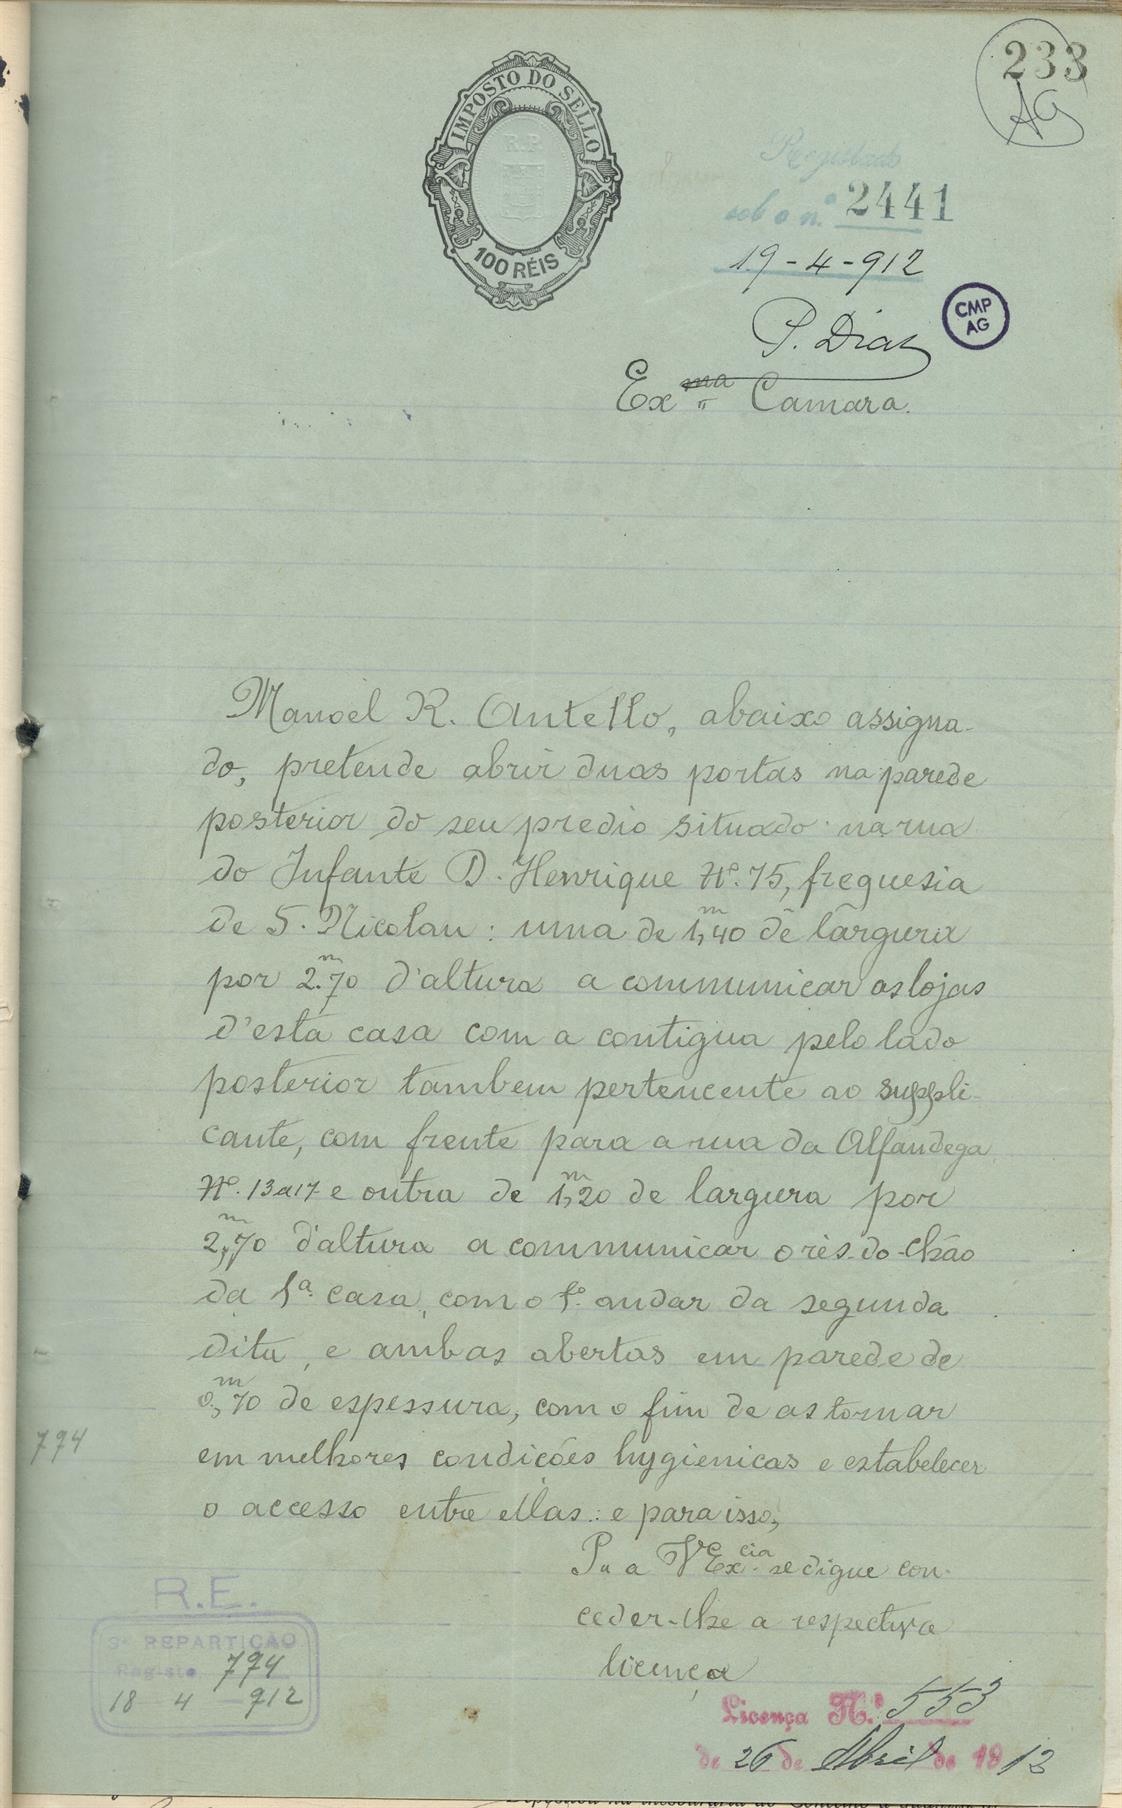 233
AG
IMPOSTO DO SELLO
R.P.
100 RÉIS
Registado
sob o n.º 2441
19-4-912
P. Dias
CMP
AG
Exma Camara.
Manoel R. Antello, abaixo assigna-
do, pretende abrir duas portas na parede
posterior do seu predio situado na rua
do Infante D. Henrique Nº. 75, freguesia
de S. Nicolau: uma de 1,m40 de largura
por 2.m70 d'altura a communicar as lojas
d'esta casa com a contigua pelo lado
posterior tambem pertencente ao suppli-
cante, com frente para a rua da Alfandega
Nº. 13 a 17 e outra de 1,m20 de largura por
2,m70 d'altura a communicar o rés-do-chão
da 1ª. casa, com o 1º. andar da segunda
dita, e ambas abertas em parede de
0,m70 de espessura, com o fim de as tornar
em melhores condições hygienicas e estabelecer
o accesso entre ellas: e para isso,
P. a V. Excia. se digne con-
ceder-lhe a respectiva
licença
794
R.E.
3ª REPARTIÇÃO
Registo 794
18 4 912
Licença N.º 553
de 26 de Abril de 1912